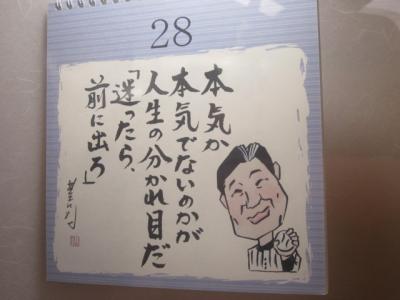 28
本気か
本気でないのかが
人生の分かれ目だ
「迷ったら、
前に出ろ」